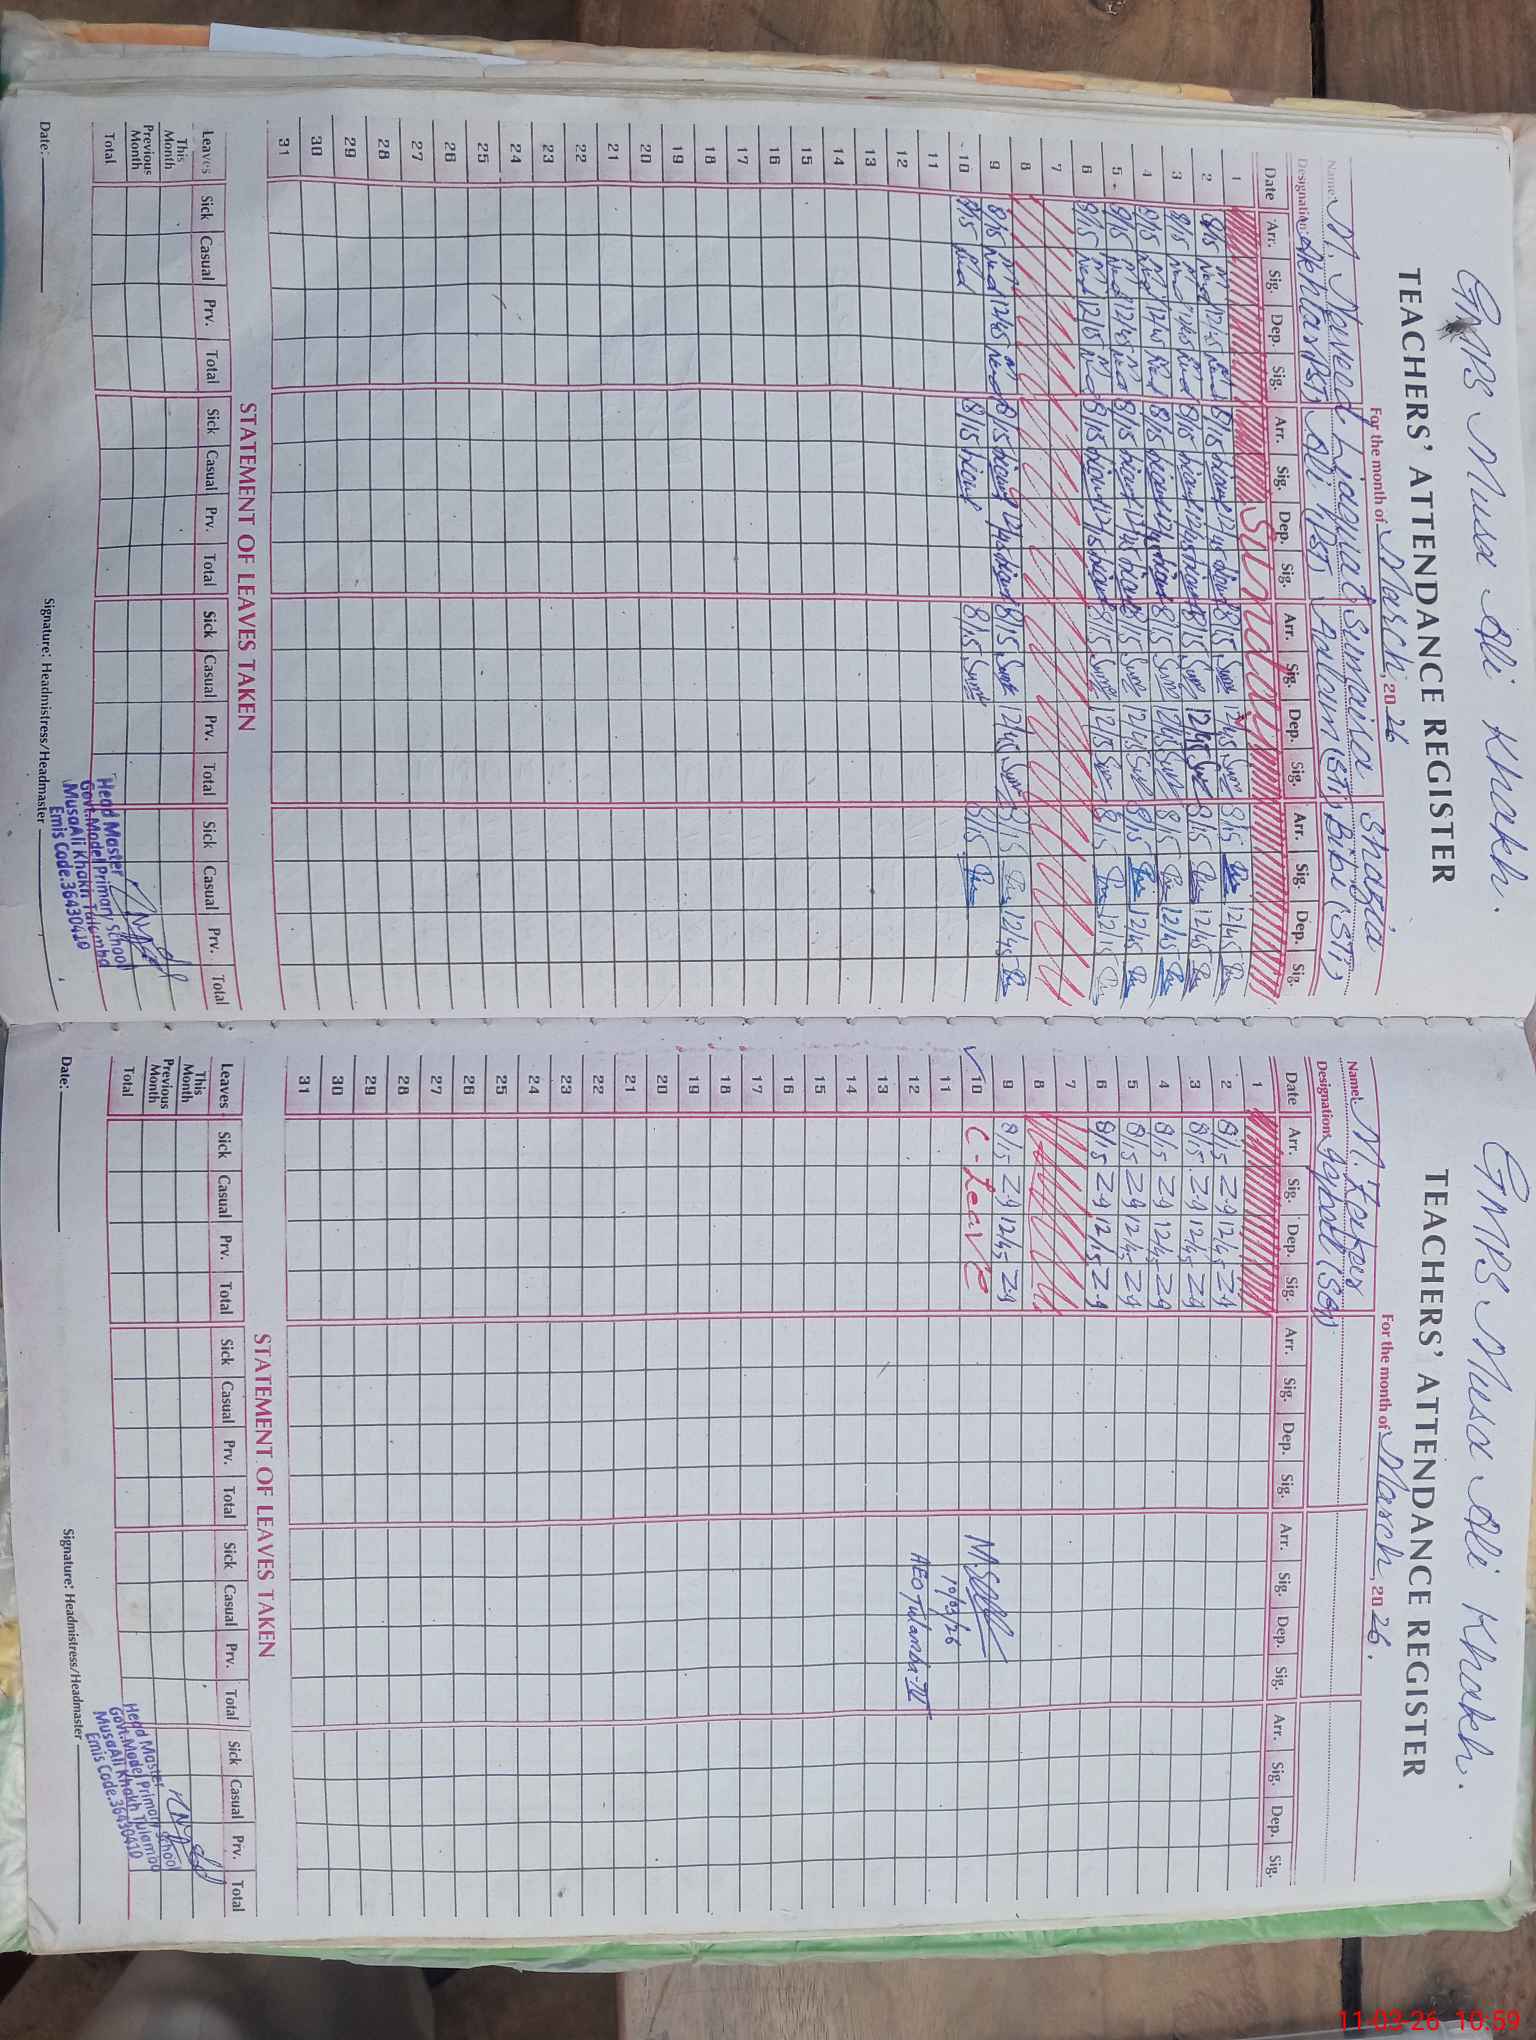 GMPS Musa Ali Khakh.
TEACHERS' ATTENDANCE REGISTER
For the month of March, 2026
Name: M. Naveed Liaquat Sumaira Shazia
Designation: Akhtar (PST) Ali (PST) Anjum (STI) Bibi (STI)
Date Arr. Sig. Dep. Sig. Arr. Sig. Dep. Sig. Arr. Sig. Dep. Sig. Arr. Sig. Dep. Sig.
1 Sunday
2 8/15 12/45 8/15 12/45 8/15 12/45 8/15 12/45
3 8/15 12/45 8/15 12/45 8/15 12/45 8/15 12/45
4 8/15 12/45 8/15 12/45 8/15 12/45 8/15 12/45
5 8/15 12/45 8/15 12/45 8/15 12/45 8/15 12/45
6 8/15 12/15 8/15 12/15 8/15 12/15 8/15 12/15
7
8
9 8/15 12/45 8/15 12/45 8/15 12/45 8/15 12/45
10 8/15 8/15 8/15 8/15
11
12
13
14
15
16
17
18
19
20
21
22
23
24
25
26
27
28
29
30
31
STATEMENT OF LEAVES TAKEN
Leaves Sick Casual Prv. Total Sick Casual Prv. Total Sick Casual Prv. Total Sick Casual Prv. Total
This Month
Previous Month
Total
Head Master
Govt.Model Primary School
MusaAli Khakh Tulamba
Emis Code.36430410
Date: Signature: Headmistress/Headmaster
GMPS Musa Ali Khakh.
TEACHERS' ATTENDANCE REGISTER
For the month of March, 2026.
Name: M.
Designation
Date Arr. Sig. Dep. Sig. Arr. Sig. Dep. Sig. Arr. Sig. Dep. Sig. Arr. Sig. Dep. Sig.
1
2 8/15 Zg 12/45 Zg
3 8/15 Zg 12/45 Zg
4 8/15 Zg 12/45 Zg
5 8/15 Zg 12/45 Zg
6 8/15 Zg 12/15 Zg
7
8
9 8/15 Zg 12/45 Zg
10 C-Leave
11 10/03/26
12 AEO Tulamba-IV
13
14
15
16
17
18
19
20
21
22
23
24
25
26
27
28
29
30
31
STATEMENT OF LEAVES TAKEN
Leaves Sick Casual Prv. Total Sick Casual Prv. Total Sick Casual Prv. Total Sick Casual Prv. Total
This Month
Previous Month
Total
Head Master
Govt.Model Primary School
MusaAli Khakh Tulamba
Emis Code.36430410
Date: Signature: Headmistress/Headmaster
11-03-26 10:59